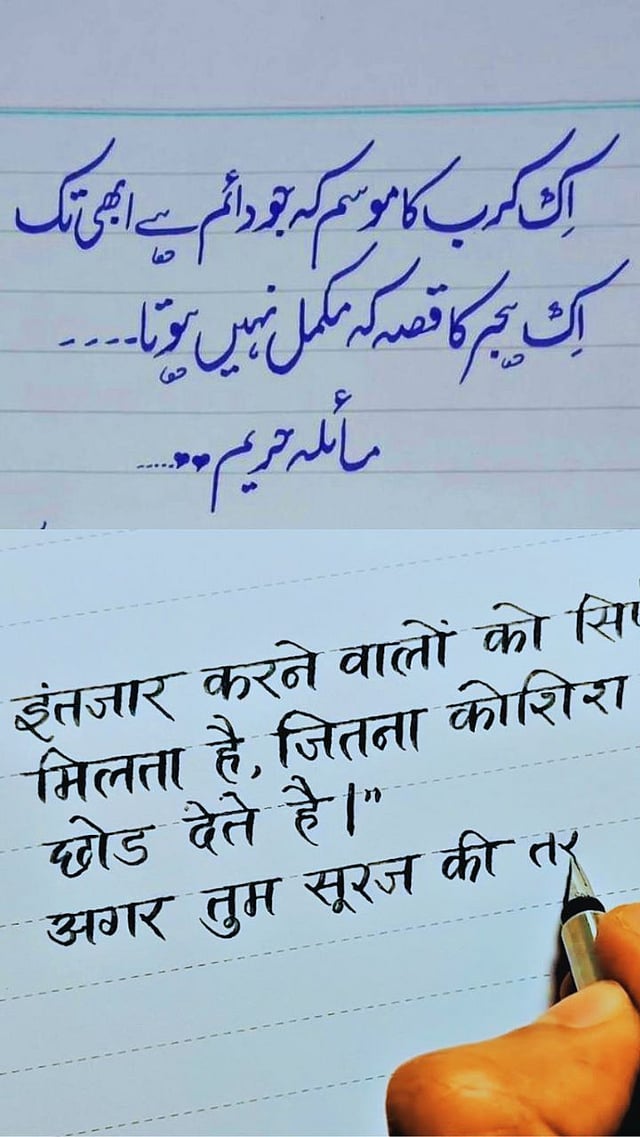 اِک کرب کا موسم کہ جو دائم ہے ابھی تک
اِک ہجر کا قصہ کہ مکمل نہیں ہوتا۔۔۔۔
مائلہ حریم ••.....
इंतजार करने वालों को
मिलता है, जितना कोशिश
छोड देते है।”
अगर तुम सूरज की तर